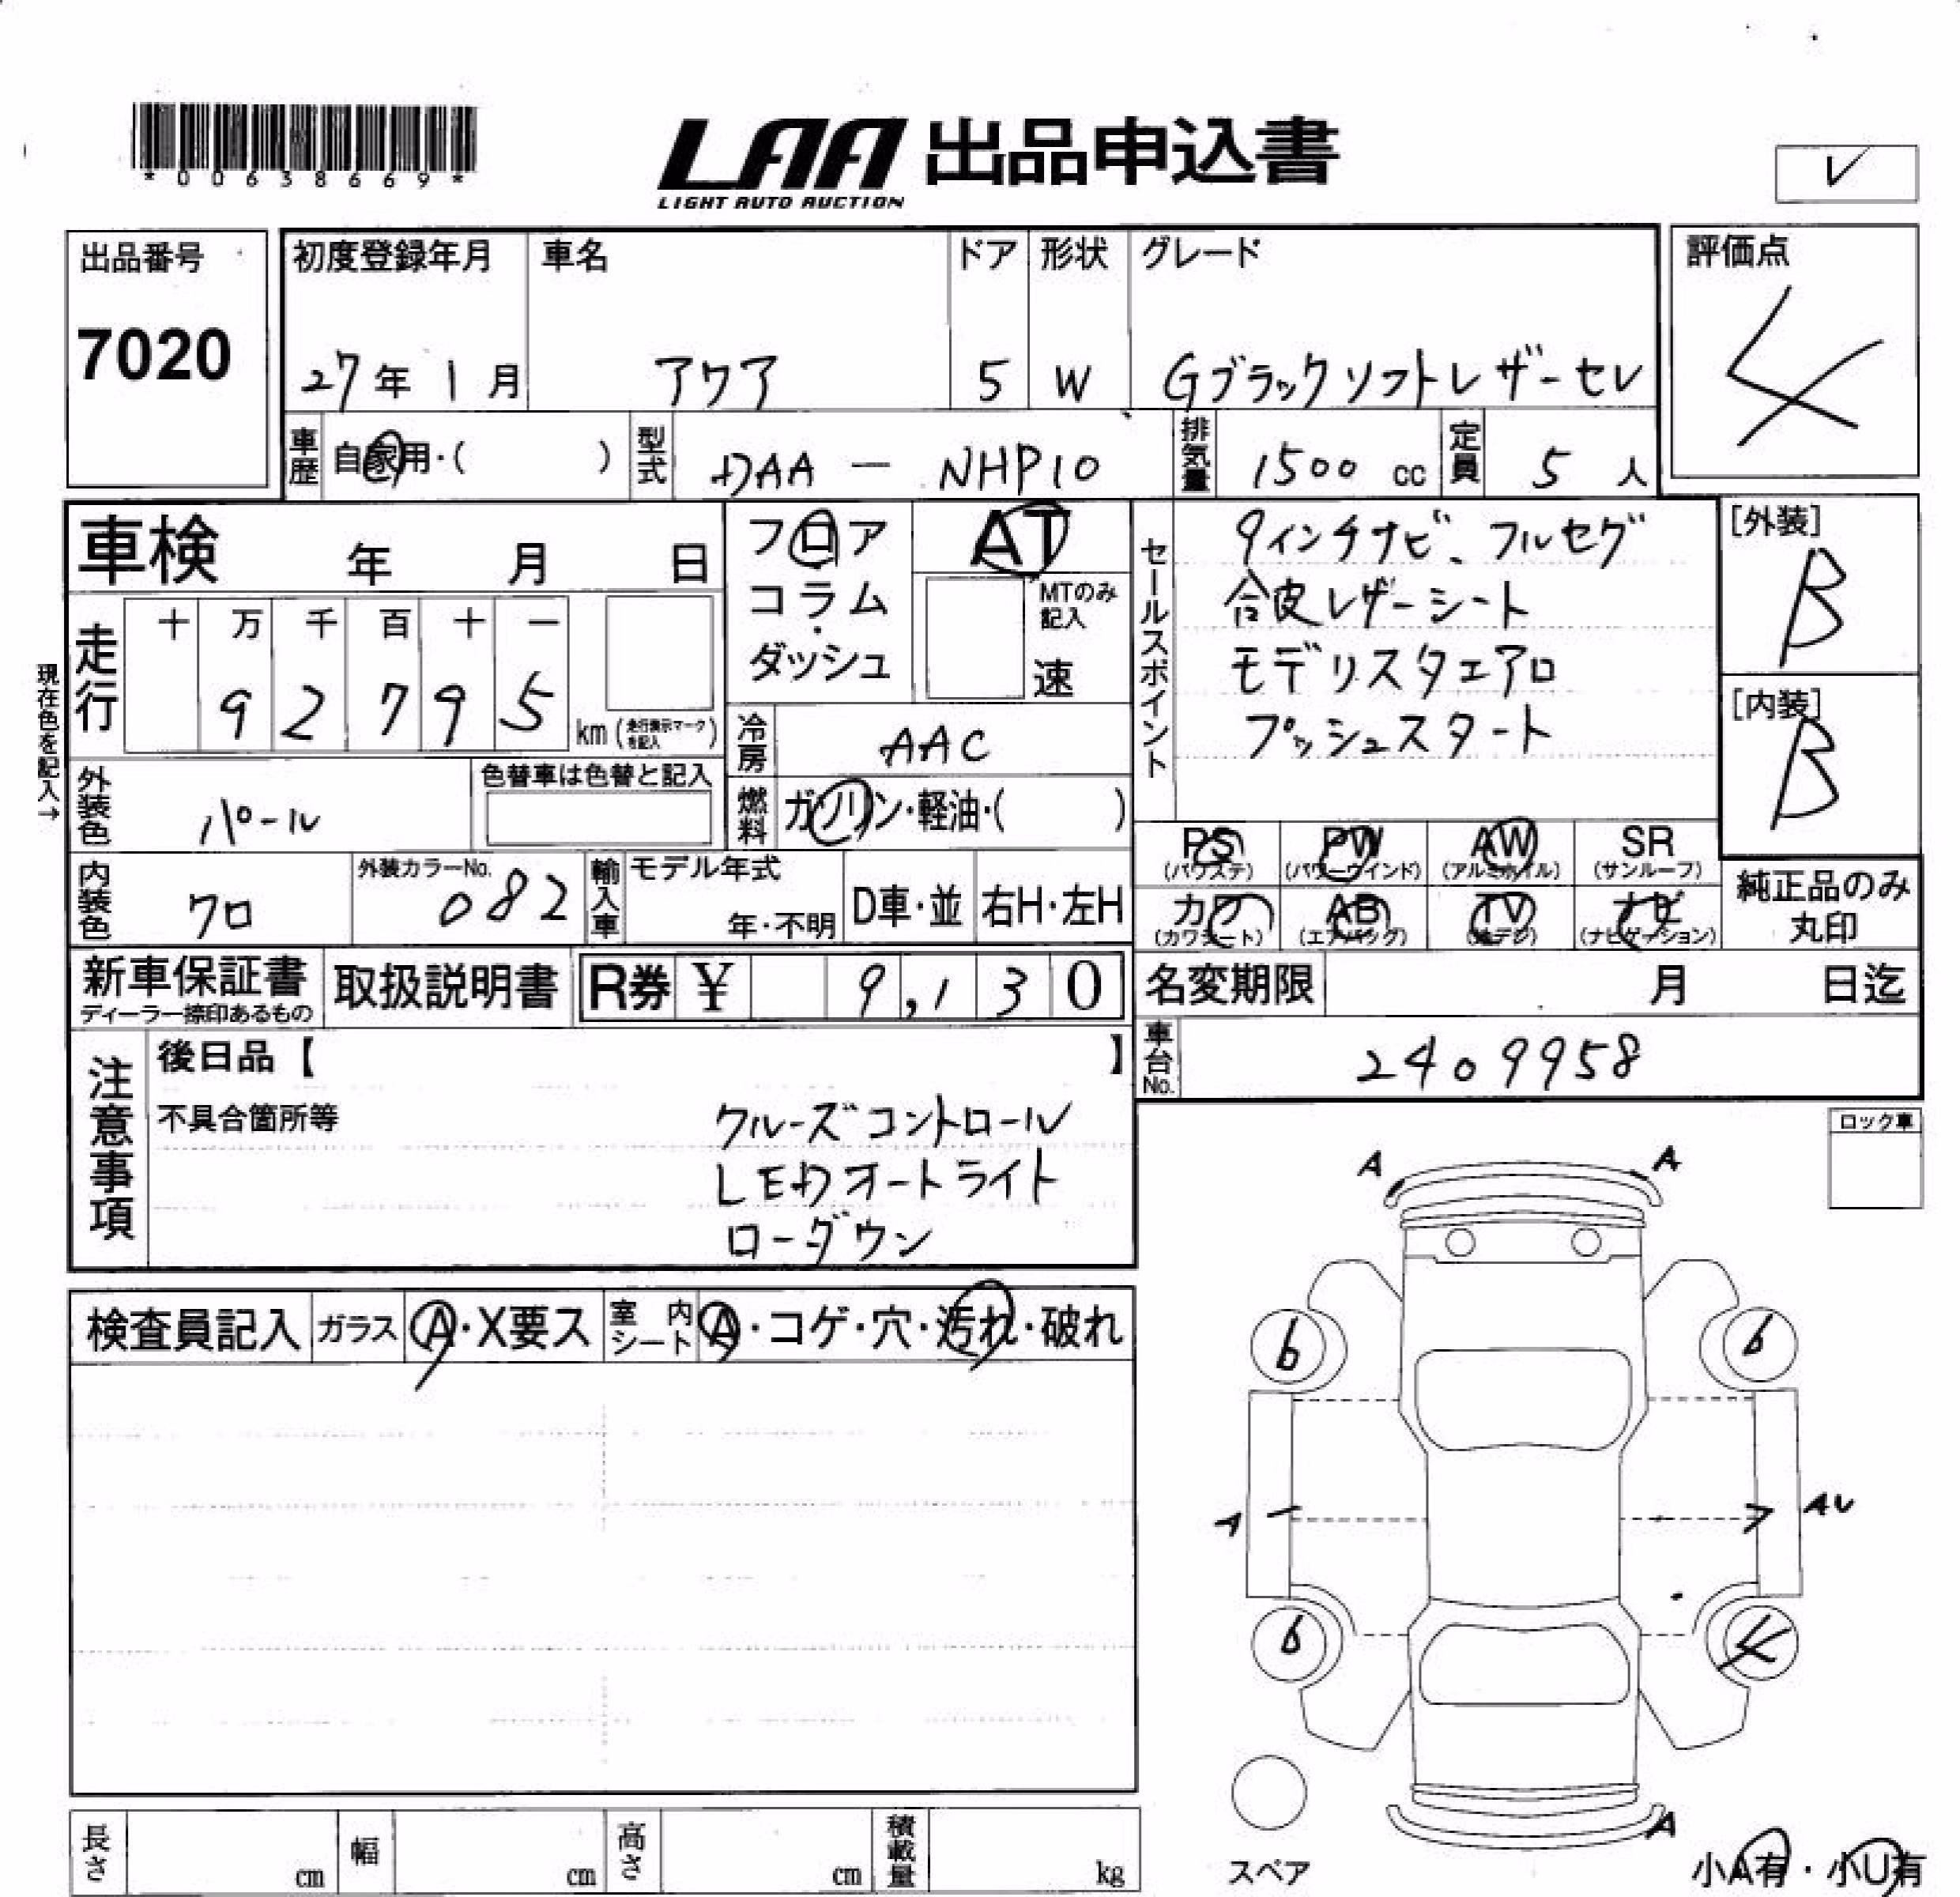 *00638669*
LAA 出品申込書
LIGHT AUTO AUCTION
V
出品番号
7020
初度登録年月 車名 ドア 形状 グレード
27年 1月 アクア 5 W Gブラックソフトレザーセレ
評価点
4
車歴 自家用・( ) 型式 DAA — NHP10 排気量 1500 cc 定員 5 人
車検 年 月 日
フロア AT
コラム・ダッシュ
MTのみ記入
速
セールスポイント
9インチナビ、フルセグ
合皮レザーシート
モデリスタエアロ
プッシュスタート
[外装]
B
[内装]
B
現在色を記入→
走行 十 万 千 百 十 一
9 2 7 9 5 km (走行表示マークを記入)
冷房 AAC
外装色 パール 色替車は色替と記入
燃料 ガソリン・軽油・( )
PS PW AW SR
(パワステ) (パワーウインド) (アルミホイル) (サンルーフ)
カワ AB TV ナビ
(カワシート) (エアバック) (地デジ) (ナビゲーション)
純正品のみ
丸印
内装色 クロ 外装カラーNo. 082 輸入車 モデル年式 年・不明 D車・並 右H・左H
新車保証書 取扱説明書 R券 ¥ 9,130
ディーラー捺印あるもの
名変期限 月 日迄
車台No. 2409958
注意事項
後日品【 】
不具合箇所等
クルーズコントロール
LEDオートライト
ローダウン
ロック車
検査員記入 ガラス A・X要ス 室内シート A・コゲ・穴・汚れ・破れ
A A
6 6
A AU
6 4
A
スペア
小A有・小U有
長さ cm 幅 cm 高さ cm 積載量 kg